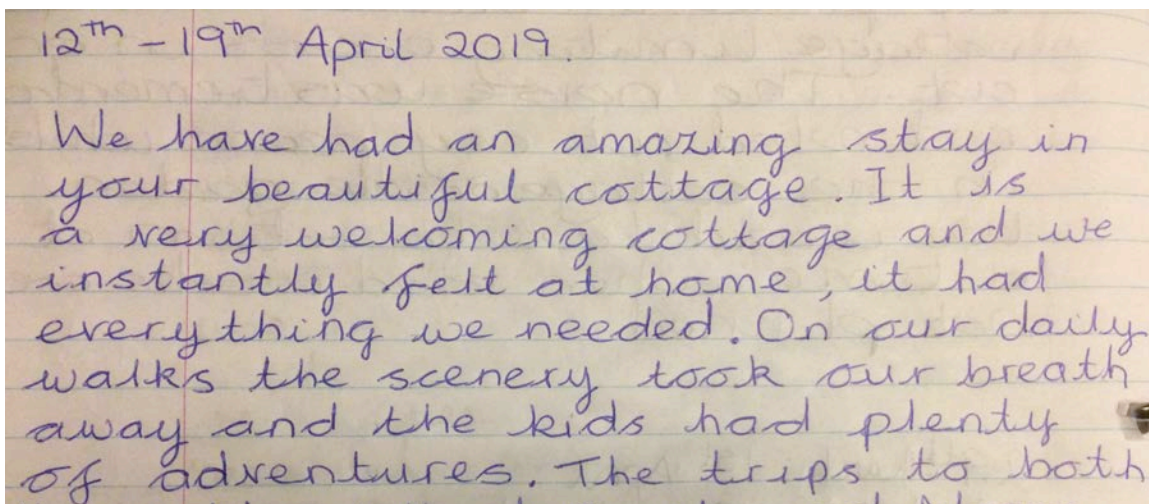 12th - 19th April 2019.
We have had an amazing stay in
your beautiful cottage. It is
a very welcoming cottage and we
instantly felt at home, it had
everything we needed. On our daily
walks the scenery took our breath
away and the kids had plenty
of adventures. The trips to both